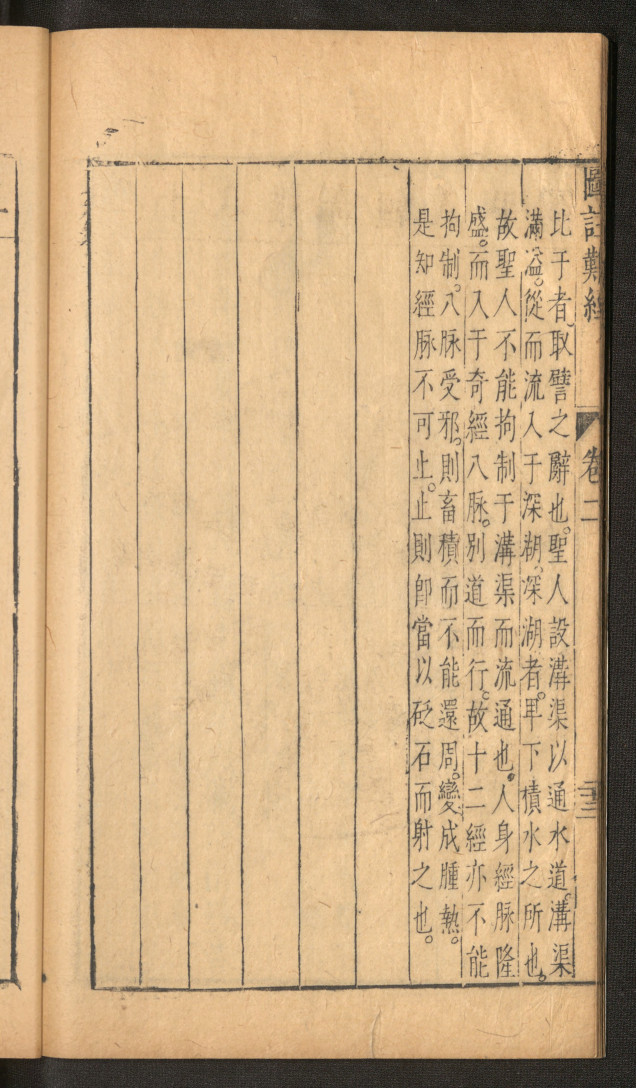 圖註難經
卷二
二十三
比于者、取譬之辭也。聖人設溝渠以通水道。溝渠
滿溢。從而流入于深湖。深湖者。卑下積水之所也。
故聖人不能拘制于溝渠而流通也。人身經脉隆
盛。而入于奇經八脉。別道而行。故十二經亦不能
拘制。八脉受邪。則畜積而不能還周。變成腫熱。
是知經脉不可止。止則卽當以砭石而射之也。